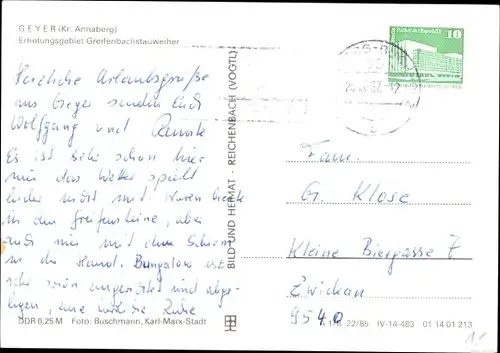 GEYER (Kr. Annaberg)
Erholungsgebiet Greifenbachstauweiher
Herzliche Urlaubsgrüße
aus Geyer senden Euch
Wolfgang und Renate
Es ist sehr schön hier
nur das Wetter spielt
leider nicht mit. Waren heute
in den Greifensteine, aber
auch nur mit dem Schirm
in der Hand. Bungalow ist
sehr schön eingerichtet und abge-
legen, eine die Ruhe
DDR 0,25 M Foto: Buschmann, Karl-Marx-Stadt
BILD UND HEIMAT · REICHENBACH (VOGTL)
10
Fam.
G. Klose
Kleine Biergasse 7
Zwickau
9540
22/85 IV-14-483 01 14 01 213